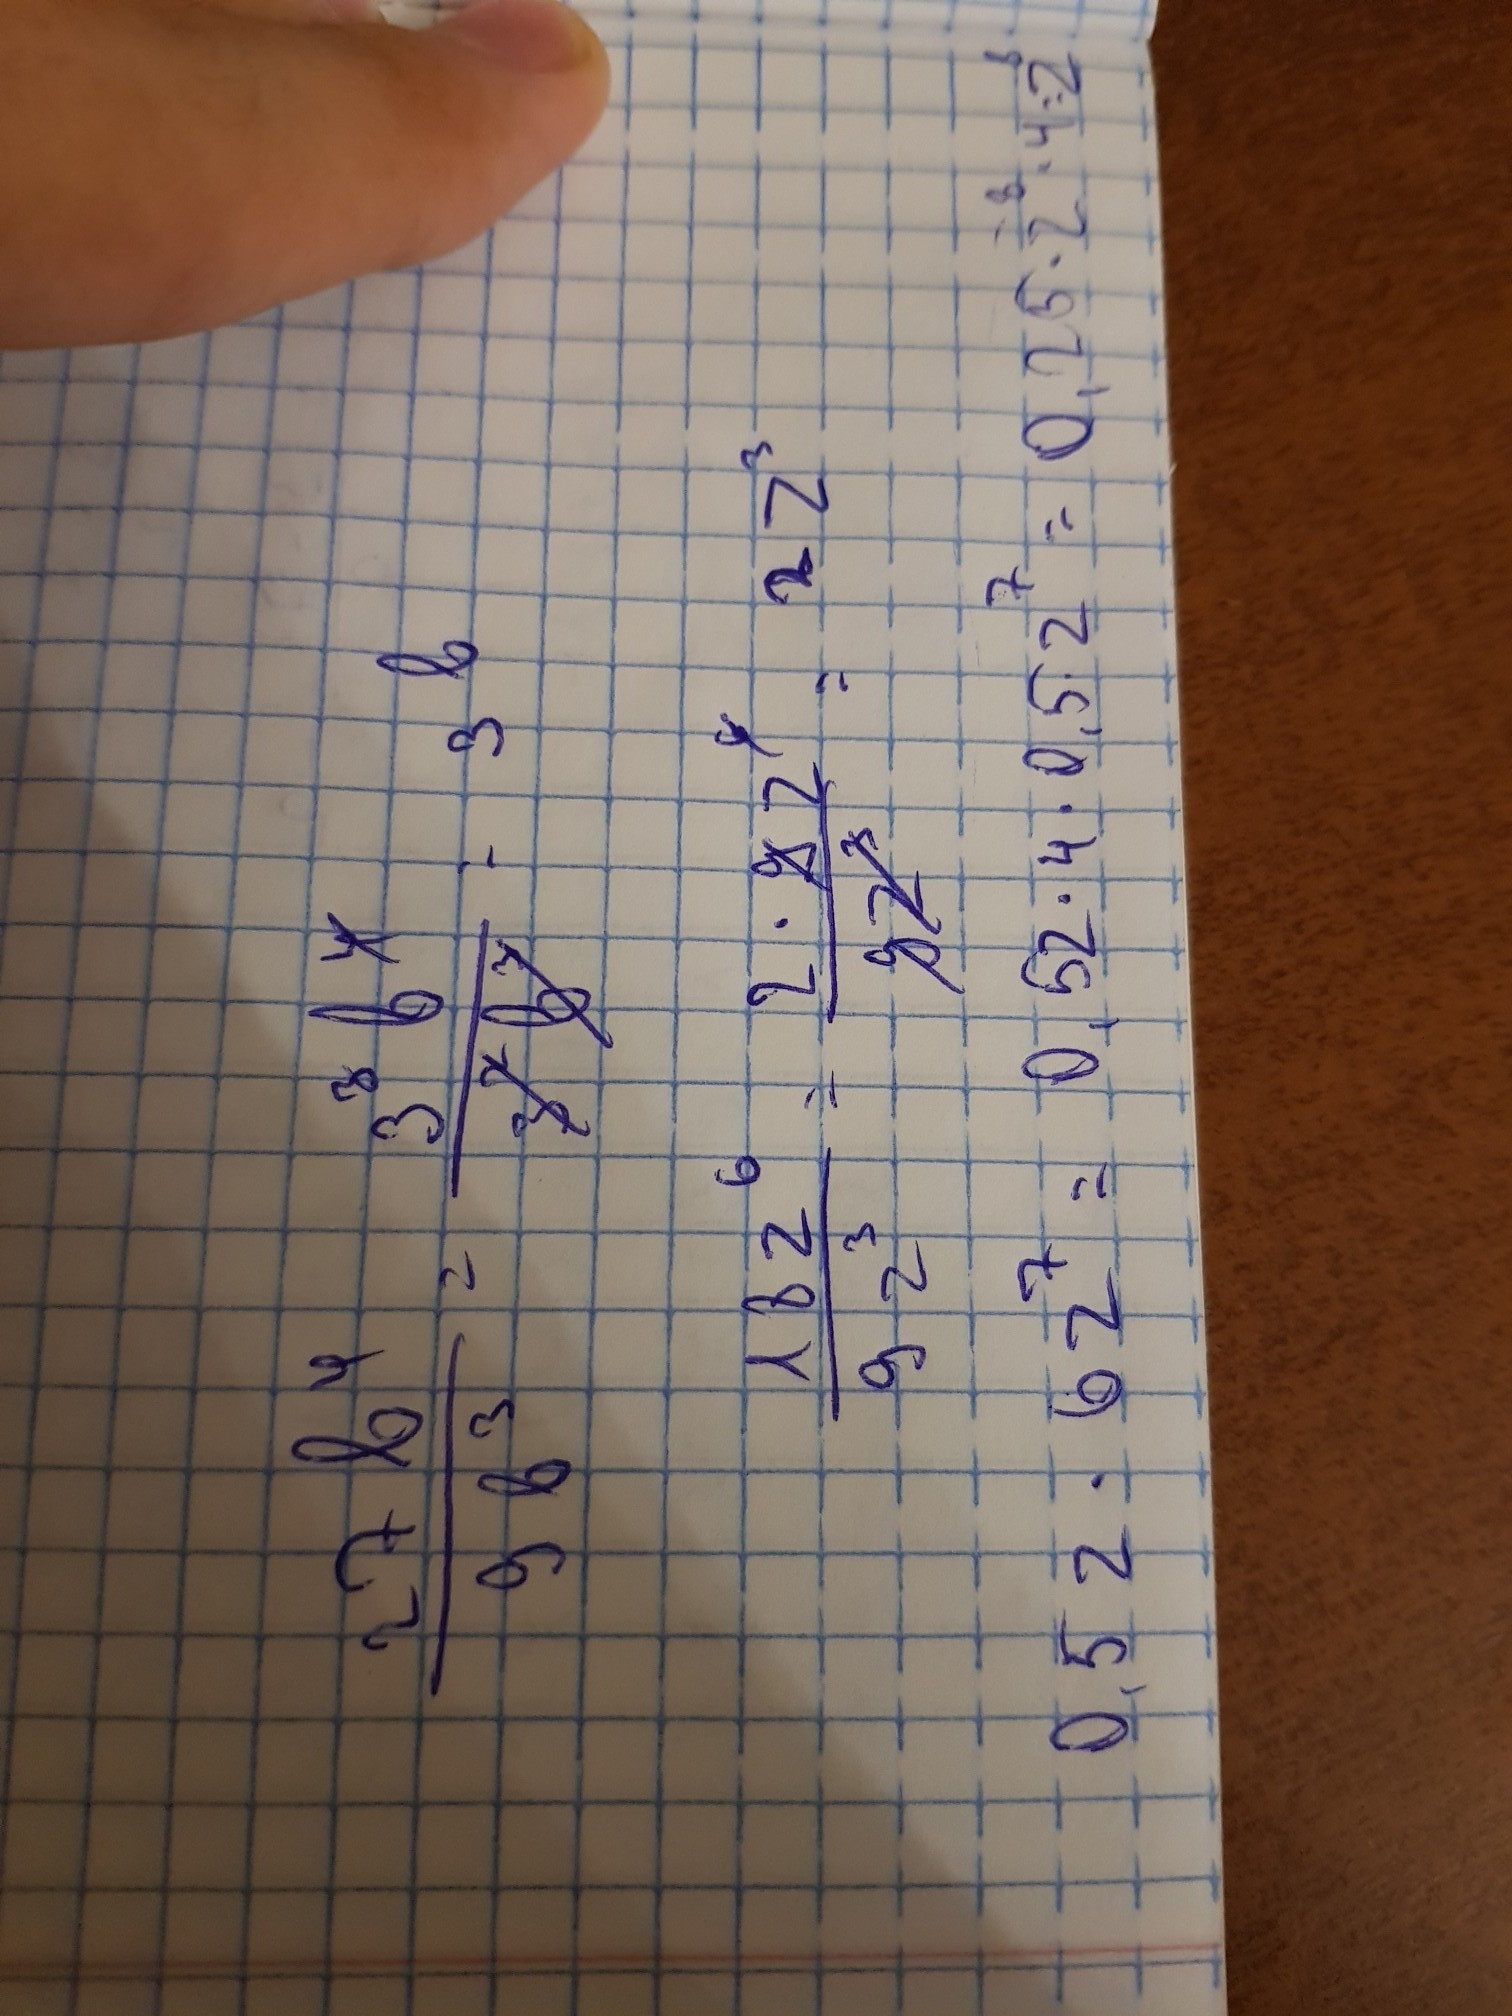 27b⁴/9b³ = 3³b⁴/3²b³ - 3b
18z⁶/9z³ = 2·9z⁶/9z³ = 2z³
0,5z·6z⁷= 0,5z·4·0,5z⁷ = 0,25·z⁸·4:2⁸